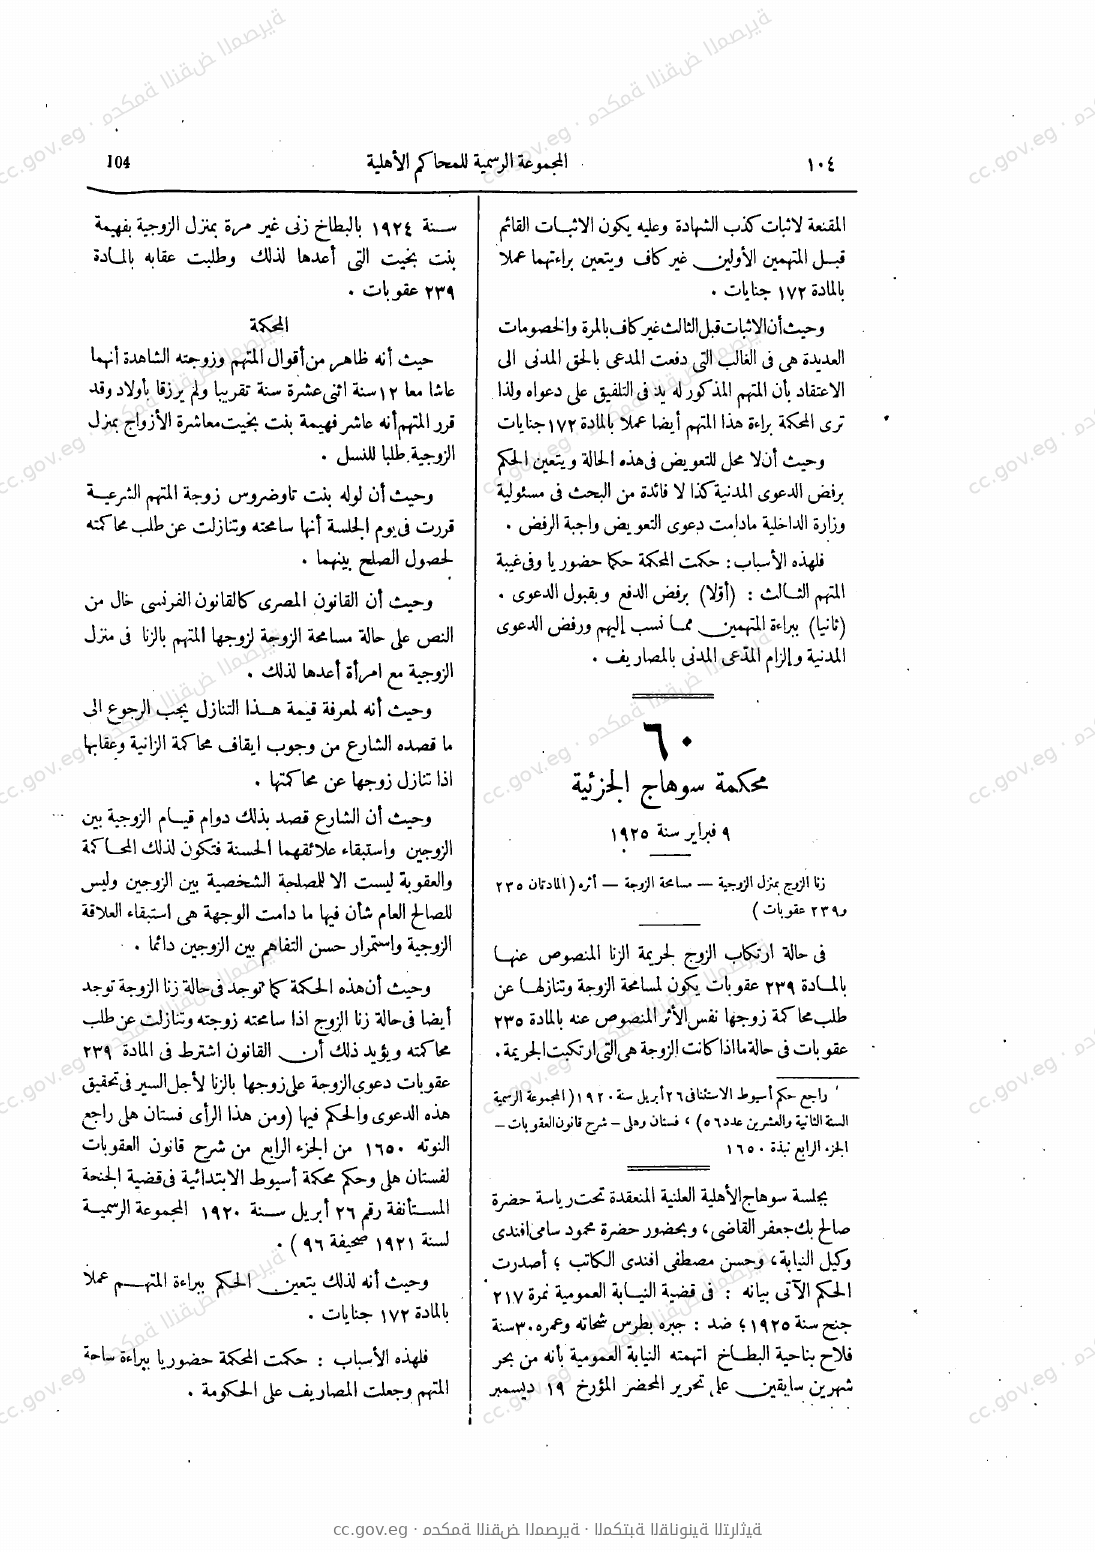 ١٠٤
المجموعة الرسمية للمحاكم الأهلية
104
المقنعة لاثبات كذب الشهادة وعليه يكون الاثبات القائم
قبل المتهمين الأولين غير كاف ويتعين براءتهما عملا
بالمادة ١٧٢ جنايات .
وحيث أن الاثبات قبل الثالث غير كاف بالمرة والخصومات
العديدة هى فى الغالب التى دفعت المدعى بالحق المدنى الى
الاعتقاد بأن المتهم المذكور له يد فى التلفيق على دعواه ولذا
ترى المحكمة براءة هذا المتهم أيضا عملا بالمادة ١٧٢ جنايات
وحيث أن لا محل للتعويض فى هذه الحالة ويتعين الحكم
برفض الدعوى المدنية كذا لا فائدة من البحث فى مسئولية
وزارة الداخلية مادامت دعوى التعويض واجبة الرفض .
فلهذه الأسباب : حكمت المحكمة حكما حضوريا وفى غيبة
المتهم الثالث : (أوّلا) برفض الدفع وبقبول الدعوى .
(ثانيا) ببراءة المتهمين مما نسب إليهم ورفض الدعوى
المدنية وإلزام المدّعى المدنى بالمصاريف .
٦٠
محكمة سوهاج الجزئية
٩ فبراير سنة ١٩٢٥
زنا الزوج بمنزل الزوجية — مسامحة الزوجة — أثره (المادتان ٢٣٥
و٢٣٩ عقوبات)
فى حالة ارتكاب الزوج لجريمة الزنا المنصوص عنها
بالمادة ٢٣٩ عقوبات يكون لمسامحة الزوجة وتنازلها عن
طلب محاكمة زوجها نفس الأثر المنصوص عنه بالمادة ٢٣٥
عقوبات فى حالة ما اذا كانت الزوجة هى التى ارتكبت الجريمة .
راجع حكم أسيوط الاستئنافى ٢٦ أبريل سنة ١٩٢٠ (المجموعة الرسمية
السنة الثانية والعشرين عدد ٥٦) ، فستان وهلى — شرح قانون العقوبات —
الجزء الرابع نبذة ١٦٥٠
بجلسة سوهاج الأهلية العلنية المنعقدة تحت رياسة حضرة
صالح بك جعفر القاضى ، وبحضور حضرة محمود سامى افندى
وكيل النيابة ، وحسن مصطفى افندى الكاتب ؛ أصدرت
الحكم الآتى بيانه : فى قضية النيابة العمومية نمرة ٢١٧
جنح سنة ١٩٢٥ ؛ ضد : جبره بطرس شحاته وعمره ٣٠ سنة
فلاح بناحية البطاخ اتهمته النيابة العمومية بأنه من بحر
شهرين سابقين على تحرير المحضر المؤرخ ١٩ ديسمبر
سنة ١٩٢٤ بالبطاخ زنى غير مرة بمنزل الزوجية بفهيمة
بنت بخيت التى أعدها لذلك وطلبت عقابه بالمادة
٢٣٩ عقوبات .
المحكمة
حيث أنه ظاهر من أقوال المتهم وزوجته الشاهدة أنهما
عاشا معا ١٢ سنة اثنى عشرة سنة تقريبا ولم يرزقا بأولاد وقد
قرر المتهم أنه عاشر فهيمة بنت بخيت معاشرة الأزواج بمنزل
الزوجية طلبا للنسل .
وحيث أن لوله بنت تاوضروس زوجة المتهم الشرعية
قررت فى يوم الجلسة أنها سامحته وتنازلت عن طلب محاكمته
لحصول الصلح بينهما .
وحيث أن القانون المصرى كالقانون الفرنسى خال من
النص على حالة مسامحة الزوجة لزوجها المتهم بالزنا فى منزل
الزوجية مع امرأة أعدها لذلك .
وحيث أنه لمعرفة قيمة هذا التنازل يجب الرجوع الى
ما قصده الشارع من وجوب ايقاف محاكمة الزانية وعقابها
اذا تنازل زوجها عن محاكمتها .
وحيث أن الشارع قصد بذلك دوام قيام الزوجية بين
الزوجين واستبقاء علائقهما الحسنة فتكون لذلك المحاكمة
والعقوبة ليست الا للمصلحة الشخصية بين الزوجين وليس
للصالح العام شأن فيها ما دامت الوجهة هى استبقاء العلاقة
الزوجية واستمرار حسن التفاهم بين الزوجين دائما .
وحيث أن هذه الحكمة كما توجد فى حالة زنا الزوجة توجد
أيضا فى حالة زنا الزوج اذا سامحته زوجته وتنازلت عن طلب
محاكمته ويؤيد ذلك أن القانون اشترط فى المادة ٢٣٩
عقوبات دعوى الزوجة على زوجها بالزنا لأجل السير فى تحقيق
هذه الدعوى والحكم فيها (ومن هذا الرأى فستان هلى راجع
النوته ١٦٥٠ من الجزء الرابع من شرح قانون العقوبات
لفستان هلى وحكم محكمة أسيوط الابتدائية فى قضية الجنحة
المستأنفة رقم ٢٦ أبريل سنة ١٩٢٠ المجموعة الرسمية
لسنة ١٩٢١ صحيفة ٩٦) .
وحيث أنه لذلك يتعين الحكم ببراءة المتهم عملا
بالمادة ١٧٢ جنايات .
فلهذه الأسباب : حكمت المحكمة حضوريا ببراءة ساحة
المتهم وجعلت المصاريف على الحكومة .
cc.gov.eg · محكمة النقض المصرية · المكتبة القانونية التراثية